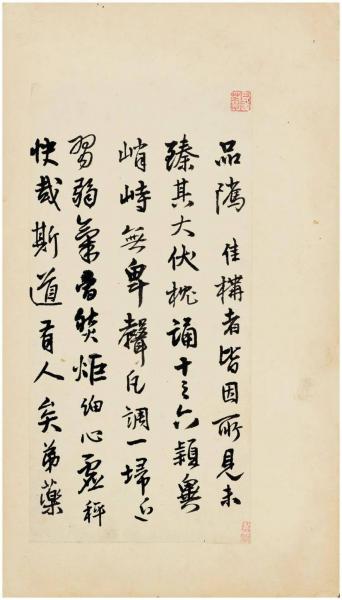 品隲佳構者皆因所見未
臻其大伏枕誦十之六穎異
峭峙無卑聲凡調一埽近
習弱氣炬細心虛秤
快哉斯道有人矣弟藥